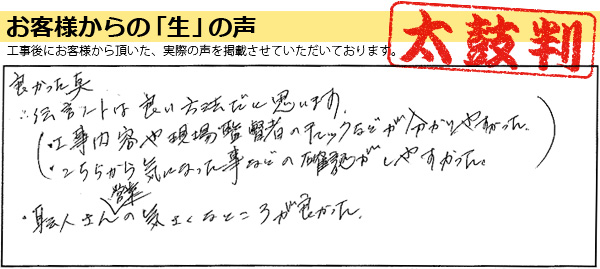 お客様からの「生」の声
太鼓判
工事後にお客様から頂いた、実際の声を掲載させていただいております。
良かった点
∴伝言ノートは良い方法だと思います。
(・工事内容や現場監督者のチェックなどが分かりやすかった。
・こちらから気になった事などの確認がしやすかった。)
営業
・職人さんの気さくなところが良かった。